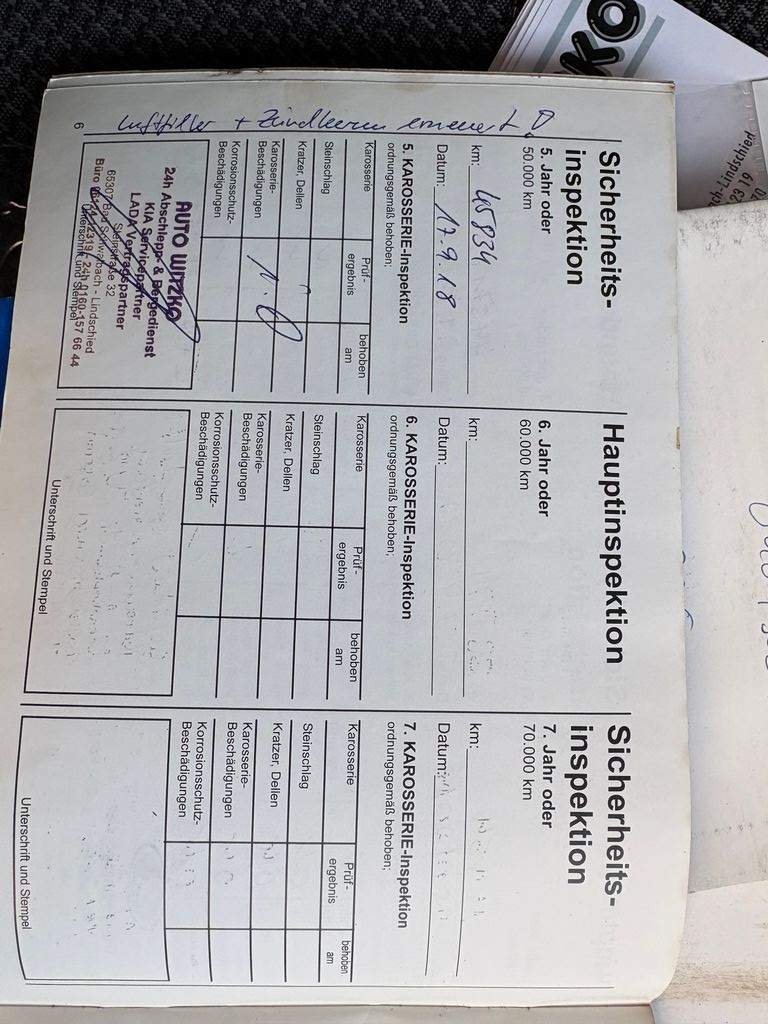 Sicherheits-
inspektion
5. Jahr oder
50.000 km
km: 45834
Datum: 17.9.18
5. KAROSSERIE-Inspektion
ordnungsgemäß behoben;
Karosserie Prüf-ergebnis behoben am
Steinschlag
Kratzer, Dellen
Karosserie-
Beschädigungen
Korrosionsschutz-
Beschädigungen
AUTO WITZKO
24h Abschlepp- & Bergedienst
KIA Servicepartner
LADA Vertragspartner
Steinstraße 32
65307 Bad Schwalbach - Lindschied
Unterschrift und Stempel
Luftfilter + Zündkerzen erneuert
6
Hauptinspektion
6. Jahr oder
60.000 km
km:
Datum:
6. KAROSSERIE-Inspektion
ordnungsgemäß behoben;
Karosserie Prüf-ergebnis behoben am
Steinschlag
Kratzer, Dellen
Karosserie-
Beschädigungen
Korrosionsschutz-
Beschädigungen
Unterschrift und Stempel
Sicherheits-
inspektion
7. Jahr oder
70.000 km
km:
Datum:
7. KAROSSERIE-Inspektion
ordnungsgemäß behoben;
Karosserie Prüf-ergebnis behoben am
Steinschlag
Kratzer, Dellen
Karosserie-
Beschädigungen
Korrosionsschutz-
Beschädigungen
Unterschrift und Stempel